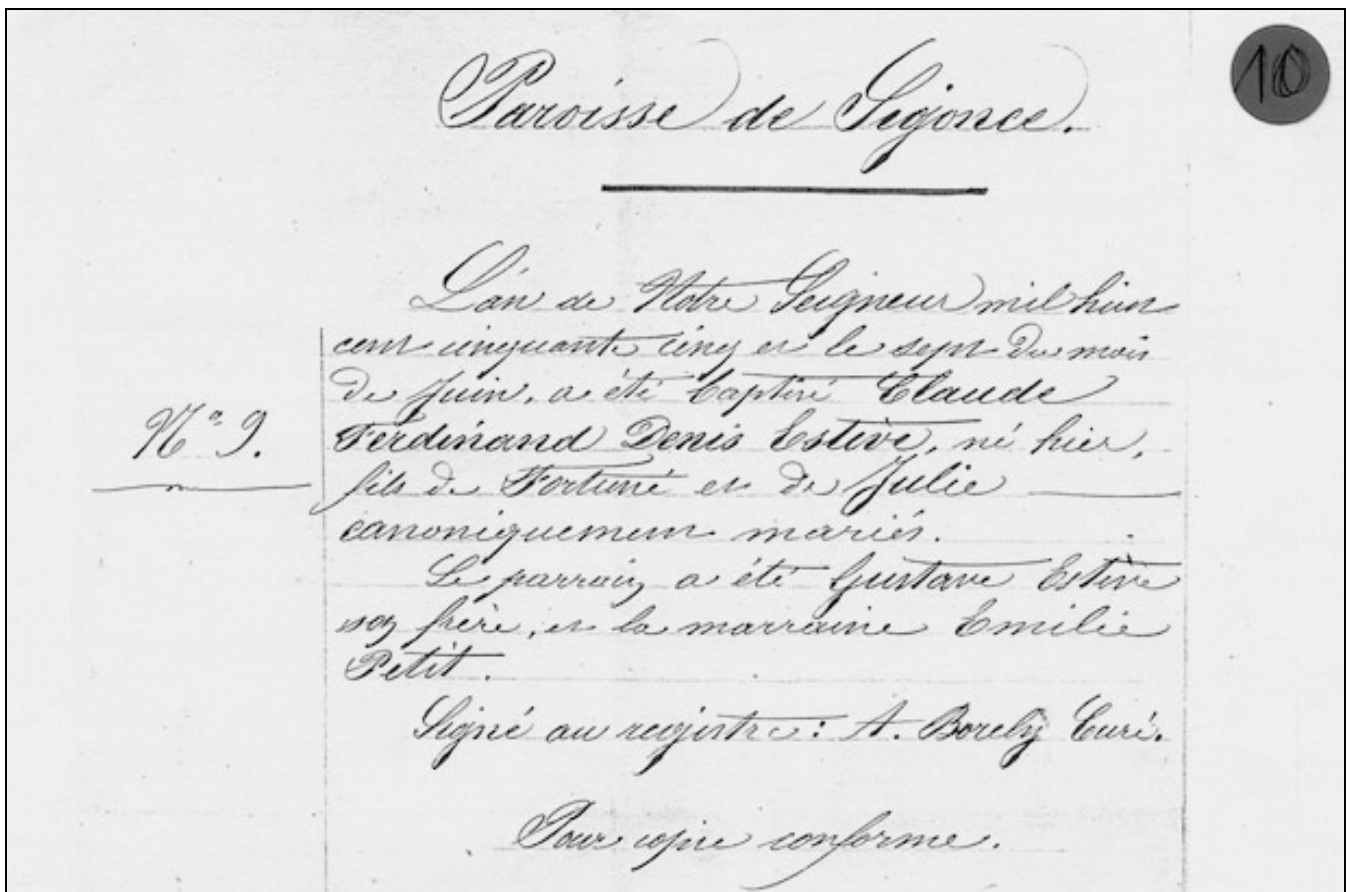 10
Paroisse de Sigonce.
L'an de Notre Seigneur mil huit
cent cinquante cinq et le sept du mois
de Juin, a été baptisé Claude
N° 9.
Ferdinand Denis Estève, né hier,
fils de Fortuné et de Julie
canoniquement mariés.
Le parrain a été Gustave Estève
son frère, et la marraine Emilie
Petit.
Signé au registre : A. Borely Curé.
Pour copie conforme.